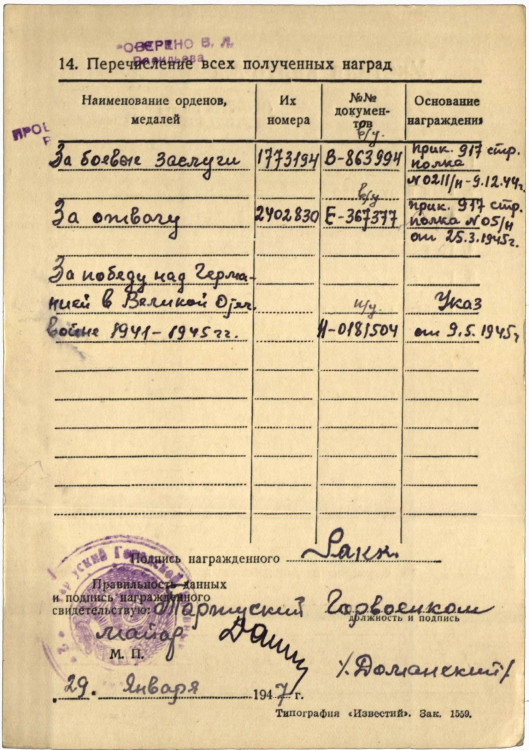 ПРОВЕРЕНО В. Л.
14. Перечисление всех полученных наград
Наименование орденов, медалей
Их номера
№№ докумен-тов
Основание награждения
За боевые заслуги 1773194 В-863994 прик. 917 стр. полка №0211/н-9.12.44г.
в/у
За отвагу 2402830 Е-367377 прик. 917 стр. полка №05/н от 25.3.1945г.
За победу над Герма-
нией в Великой Отеч. Указ
войне 1941-1945гг. Н-0181504 от 9.5.1945г.
Подпись награжденного
Правильность данных
и подпись награжденного
свидетельствую: Тартуский Горвоенком
должность и подпись
майор
М. П. /Доманский/
29. Января 1947 г.
Типография «Известий». Зак. 1559.